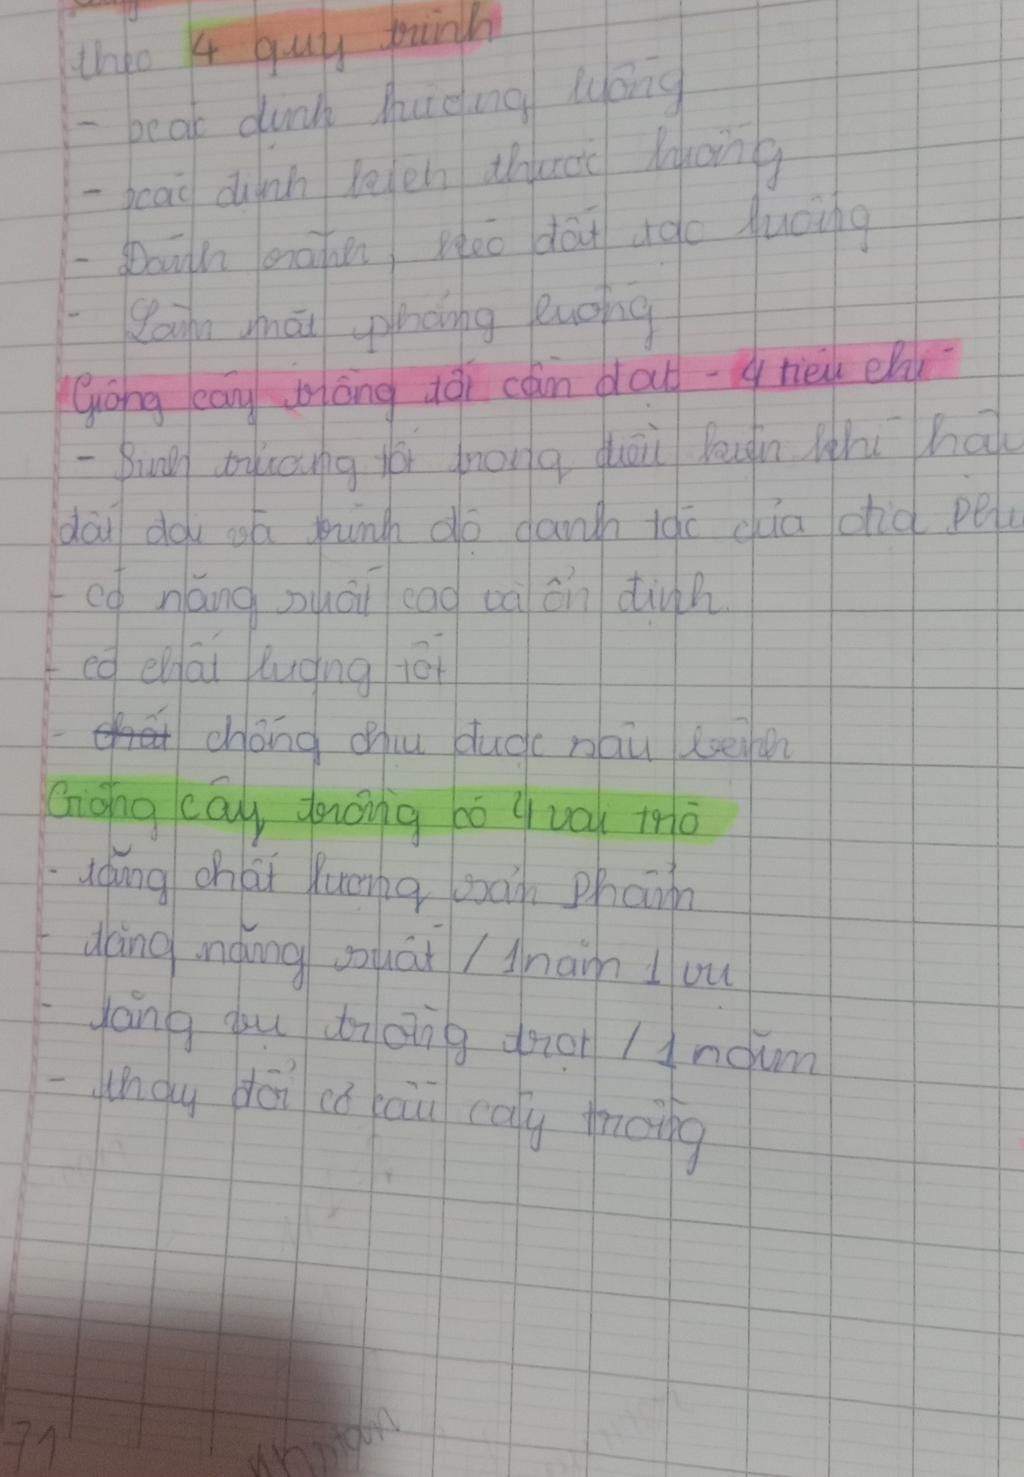 theo 4 quy trình
- xác định hướng luống
- xác định kích thước luống
- Đánh rãnh, kéo đất tạo luống
- Làm mặt phẳng luống
Giống cây trồng tốt cần đạt - 4 tiêu chí
- Sinh trưởng tốt trong điều kiện khí hậu
đất đai và trình độ canh tác của địa
- có năng suất cao và ổn định.
- có chất lượng tốt
- chất chống chịu được sâu bệnh
Giống cây trồng có 4 vai trò
- tăng chất lượng sản phẩm
- tăng năng suất / 1 năm 1 vụ
- tăng vụ trồng trọt / 1 năm
- thay đổi cơ cấu cây trồng
71